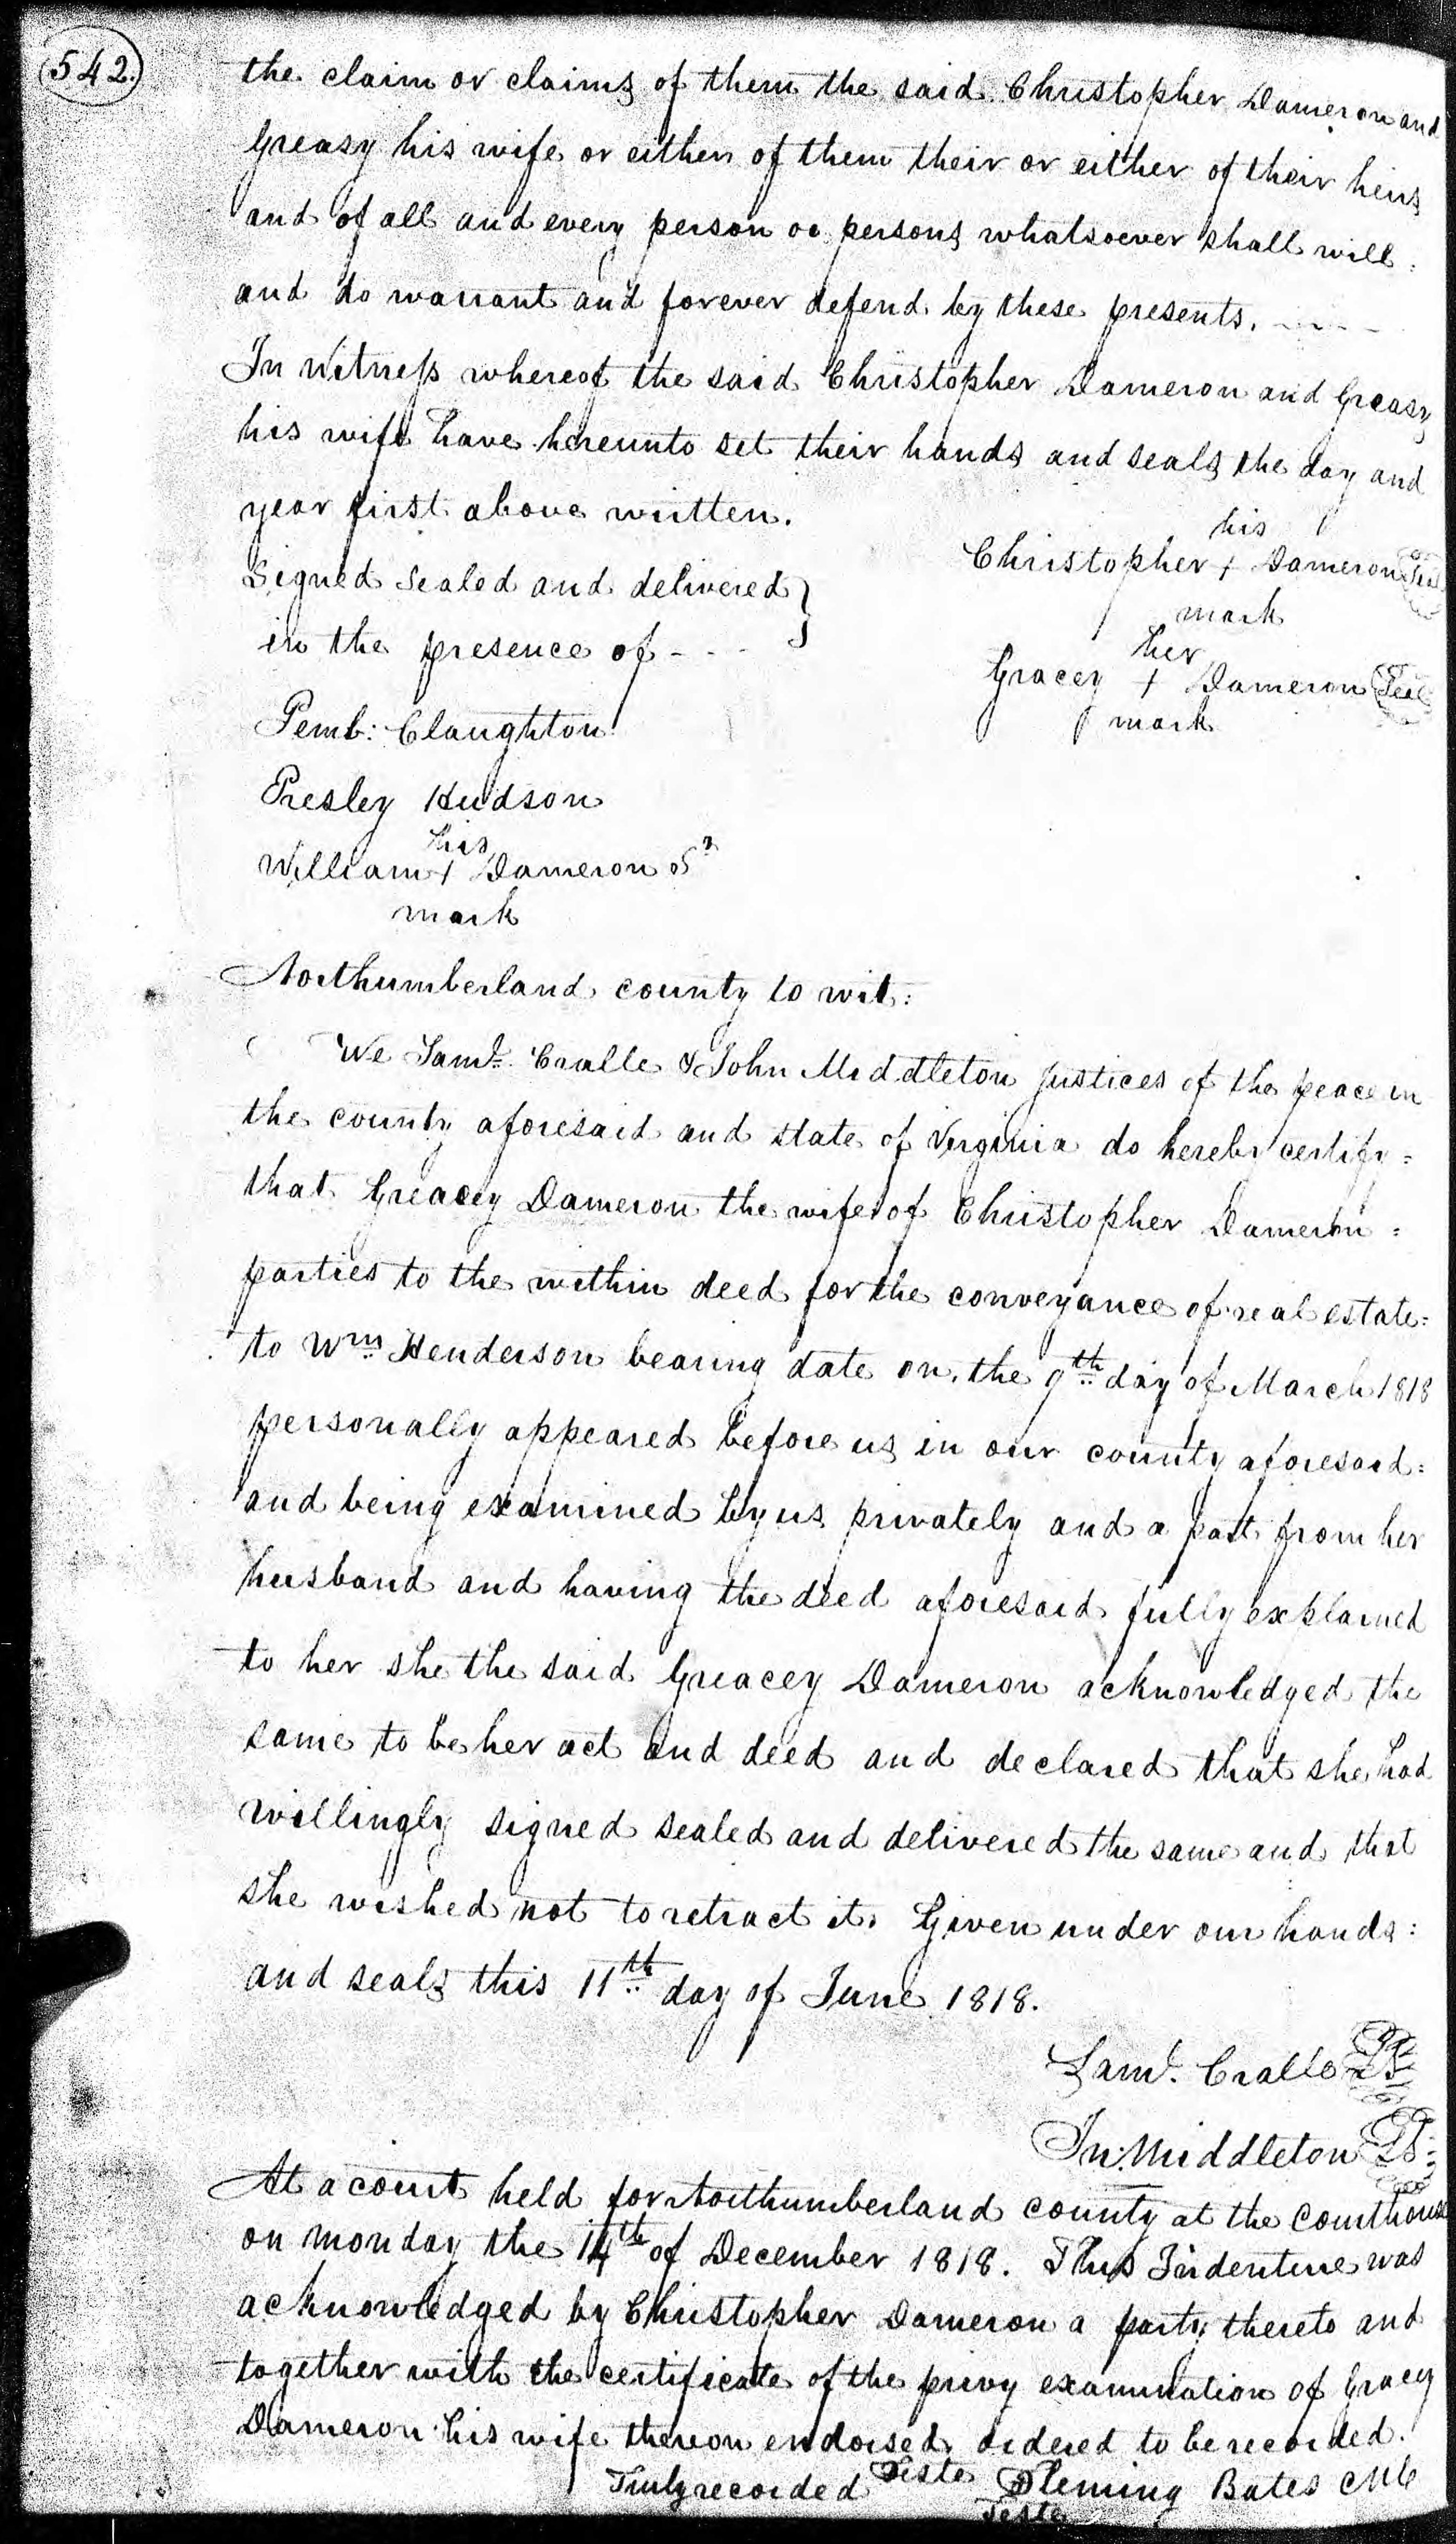 542.
the claim or claims of them the said Christopher Dameron and
Greasy his wife or either of them their or either of their heirs
and of all and every person or persons whatsoever shall will :
and do warrant and forever defend by these presents. - - - -
In Witness whereof the said Christopher Dameron and Greasy
his wife have hereunto set their hands and seals the day and
year first above written.
Signed Sealed and delivered }
in the presence of - - -
his
Christopher + Dameron Seal
mark
her
Gracey + Dameron Seal
mark
Pemb: Claughton
Presley Hudson
his
William + Dameron Sr
mark
Northumberland county to wit:
We Saml. Cralle & John Middleton Justices of the peace in
the county aforesaid and state of Virginia do hereby certify =
that Greacey Dameron the wife of Christopher Dameron =
parties to the within deed for the conveyance of real estate =
to Wm. Henderson bearing date on the 9th day of March 1818
personally appeared before us in our county aforesaid :
and being examined by us privately and a part from her
husband and having the deed aforesaid fully explained
to her she the said Greacey Dameron acknowledged the
same to be her act and deed and declared that she had
willingly signed sealed and delivered the same and that
she wished not to retract it. Given under our hands :
and seals this 11th day of June 1818.
Saml. Cralle LS
Jn: Middleton LS
At a court held for Northumberland county at the Courthouse
on monday the 14th of December 1818. This Indenture was
acknowledged by Christopher Dameron a party thereto and
together with the certificate of the privy examination of Gracey
Dameron his wife thereon endorsed, ordered to be recorded.
Truly recorded Teste Fleming Bates CNC
Teste